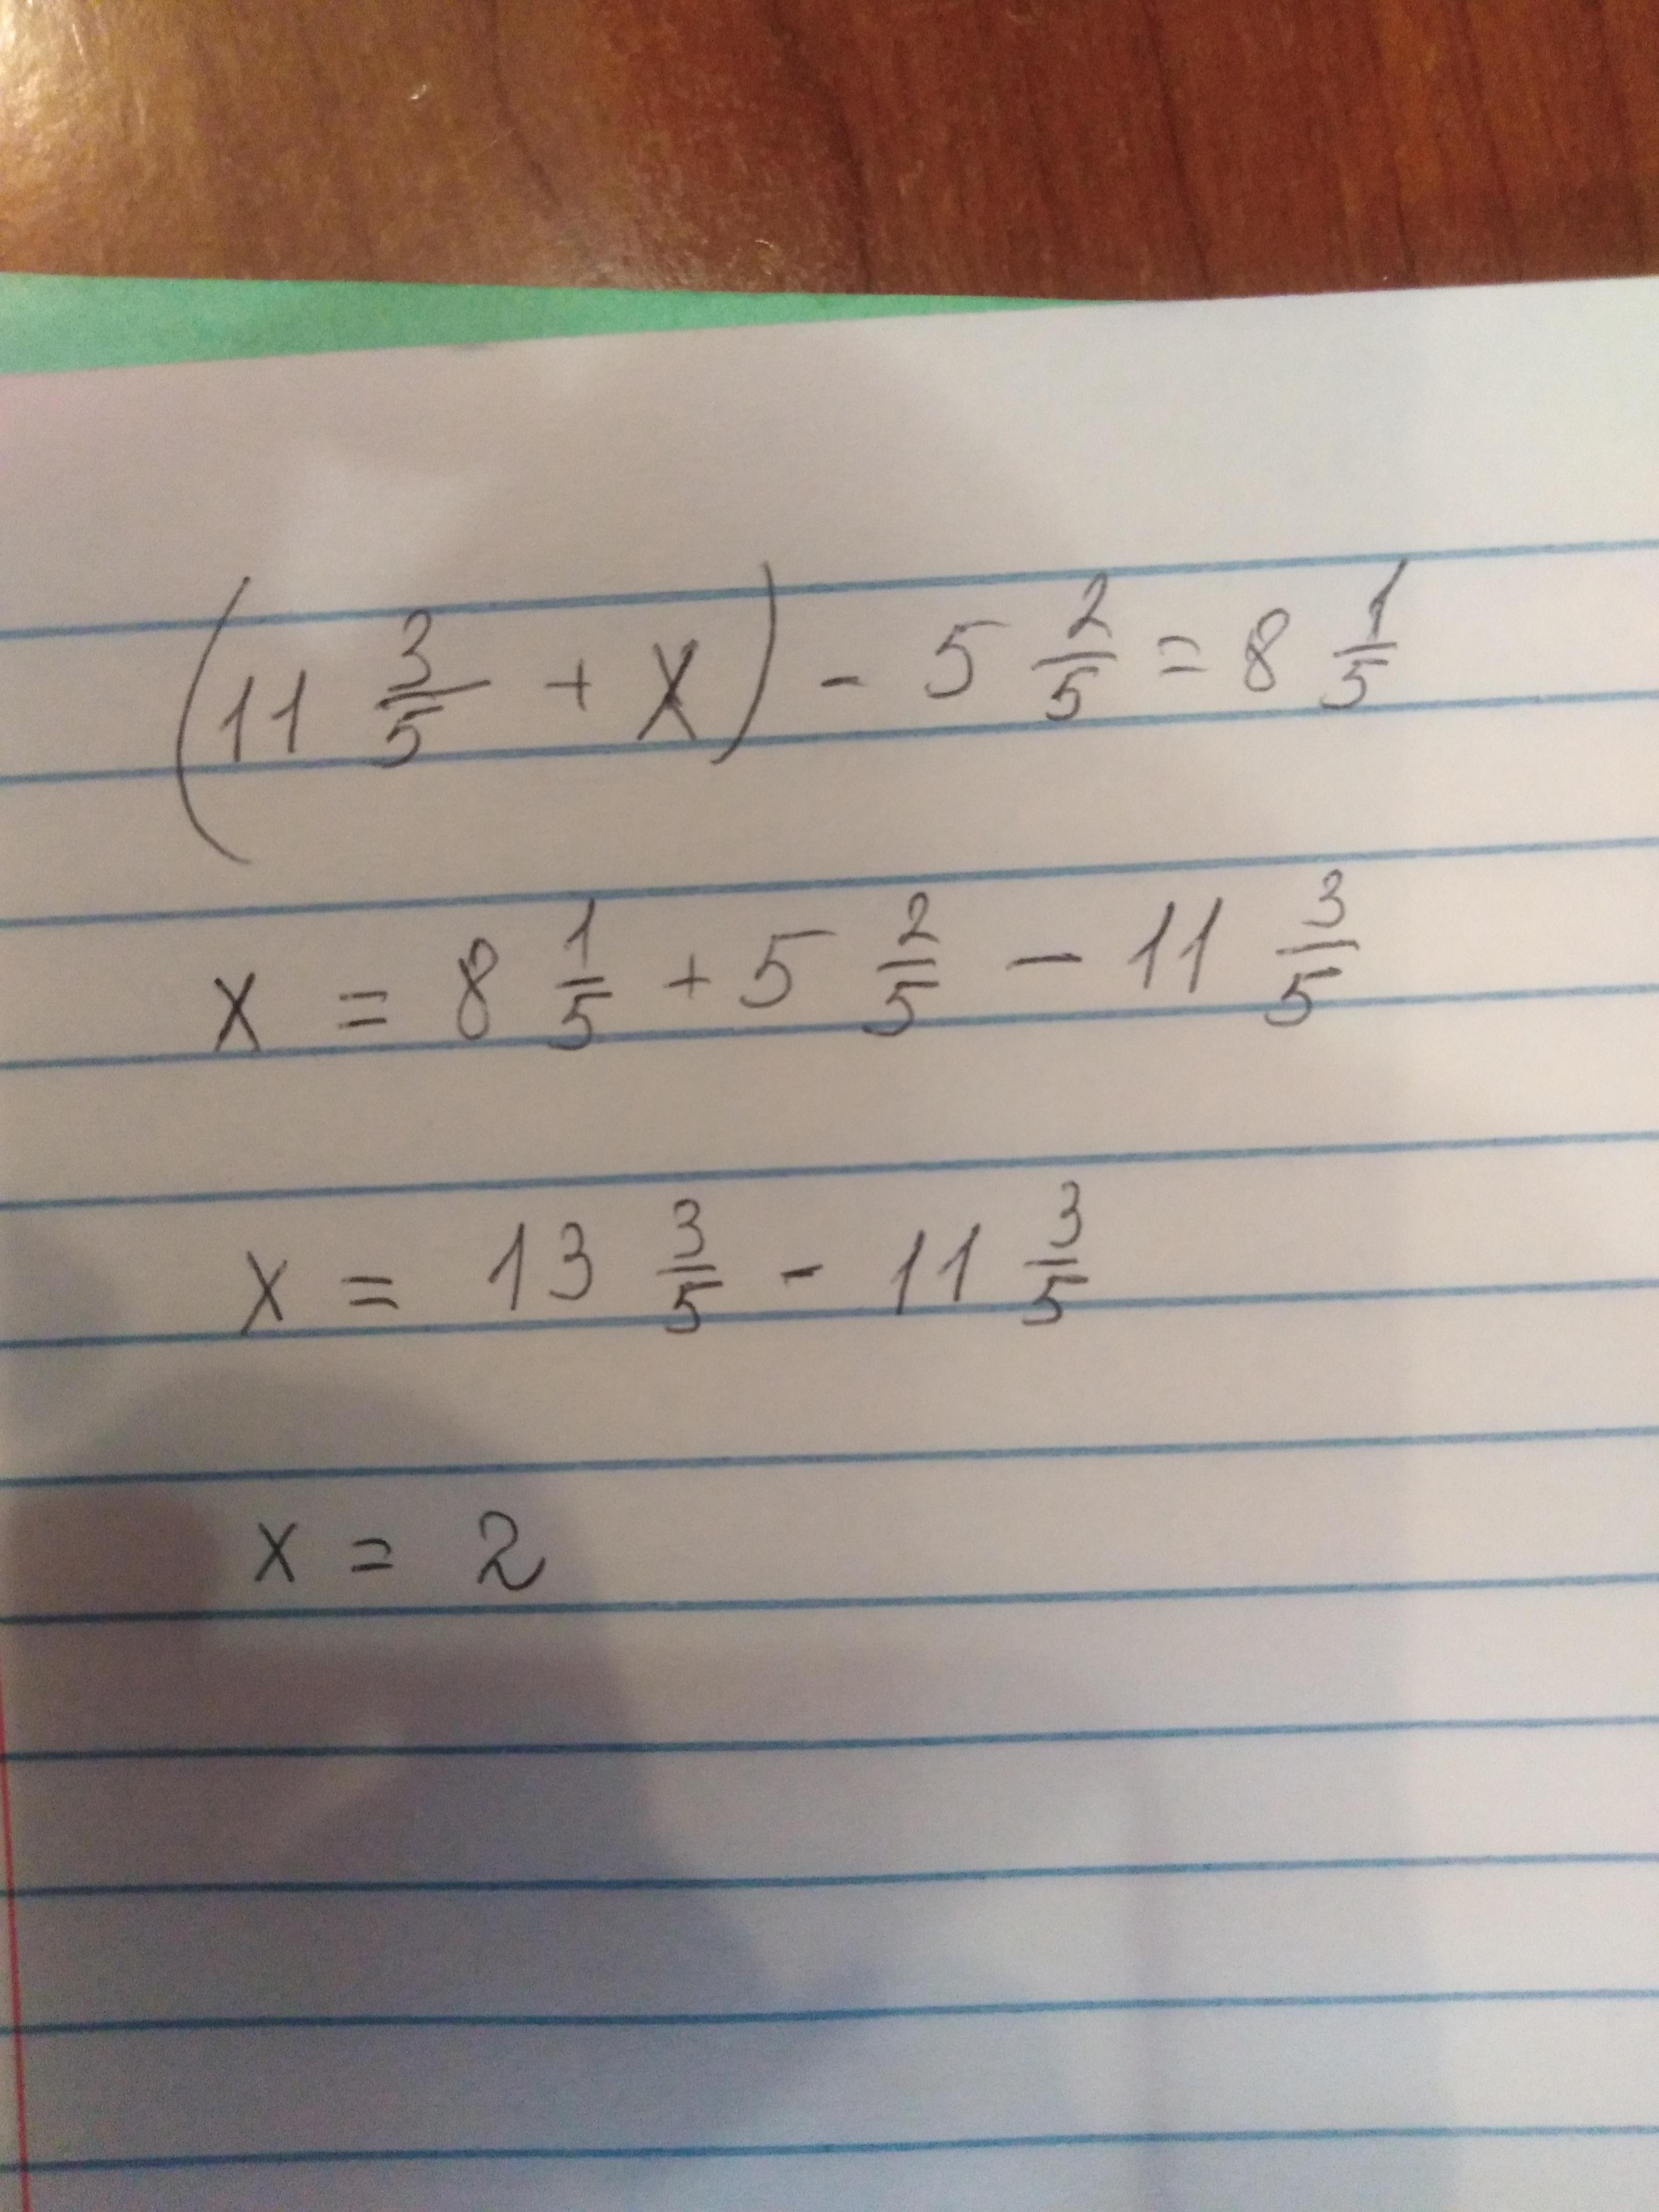 (11 3/5 + x) - 5 2/5 = 8 1/5
x = 8 1/5 + 5 2/5 - 11 3/5
x = 13 3/5 - 11 3/5
x = 2